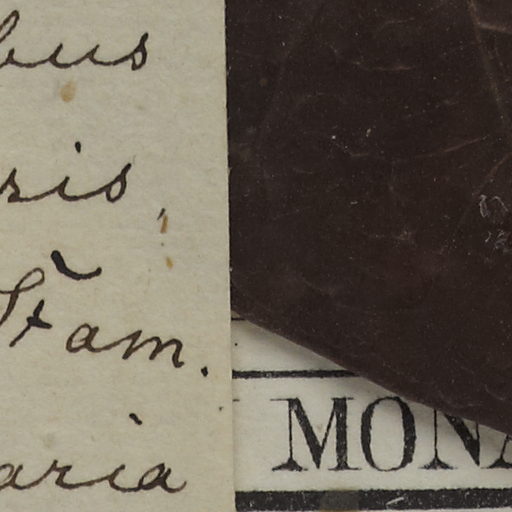 bus
ris,
Fam.
aria
MONA